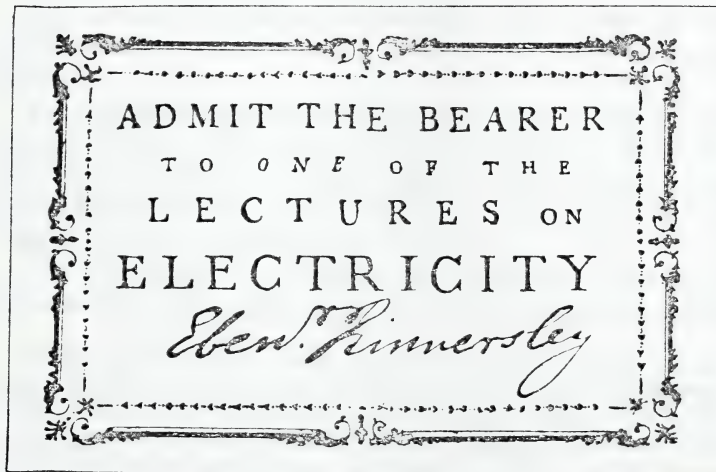 ADMIT THE BEARER
TO ONE OF THE
LECTURES ON
ELECTRICITY
Ebenr. Kinnersley